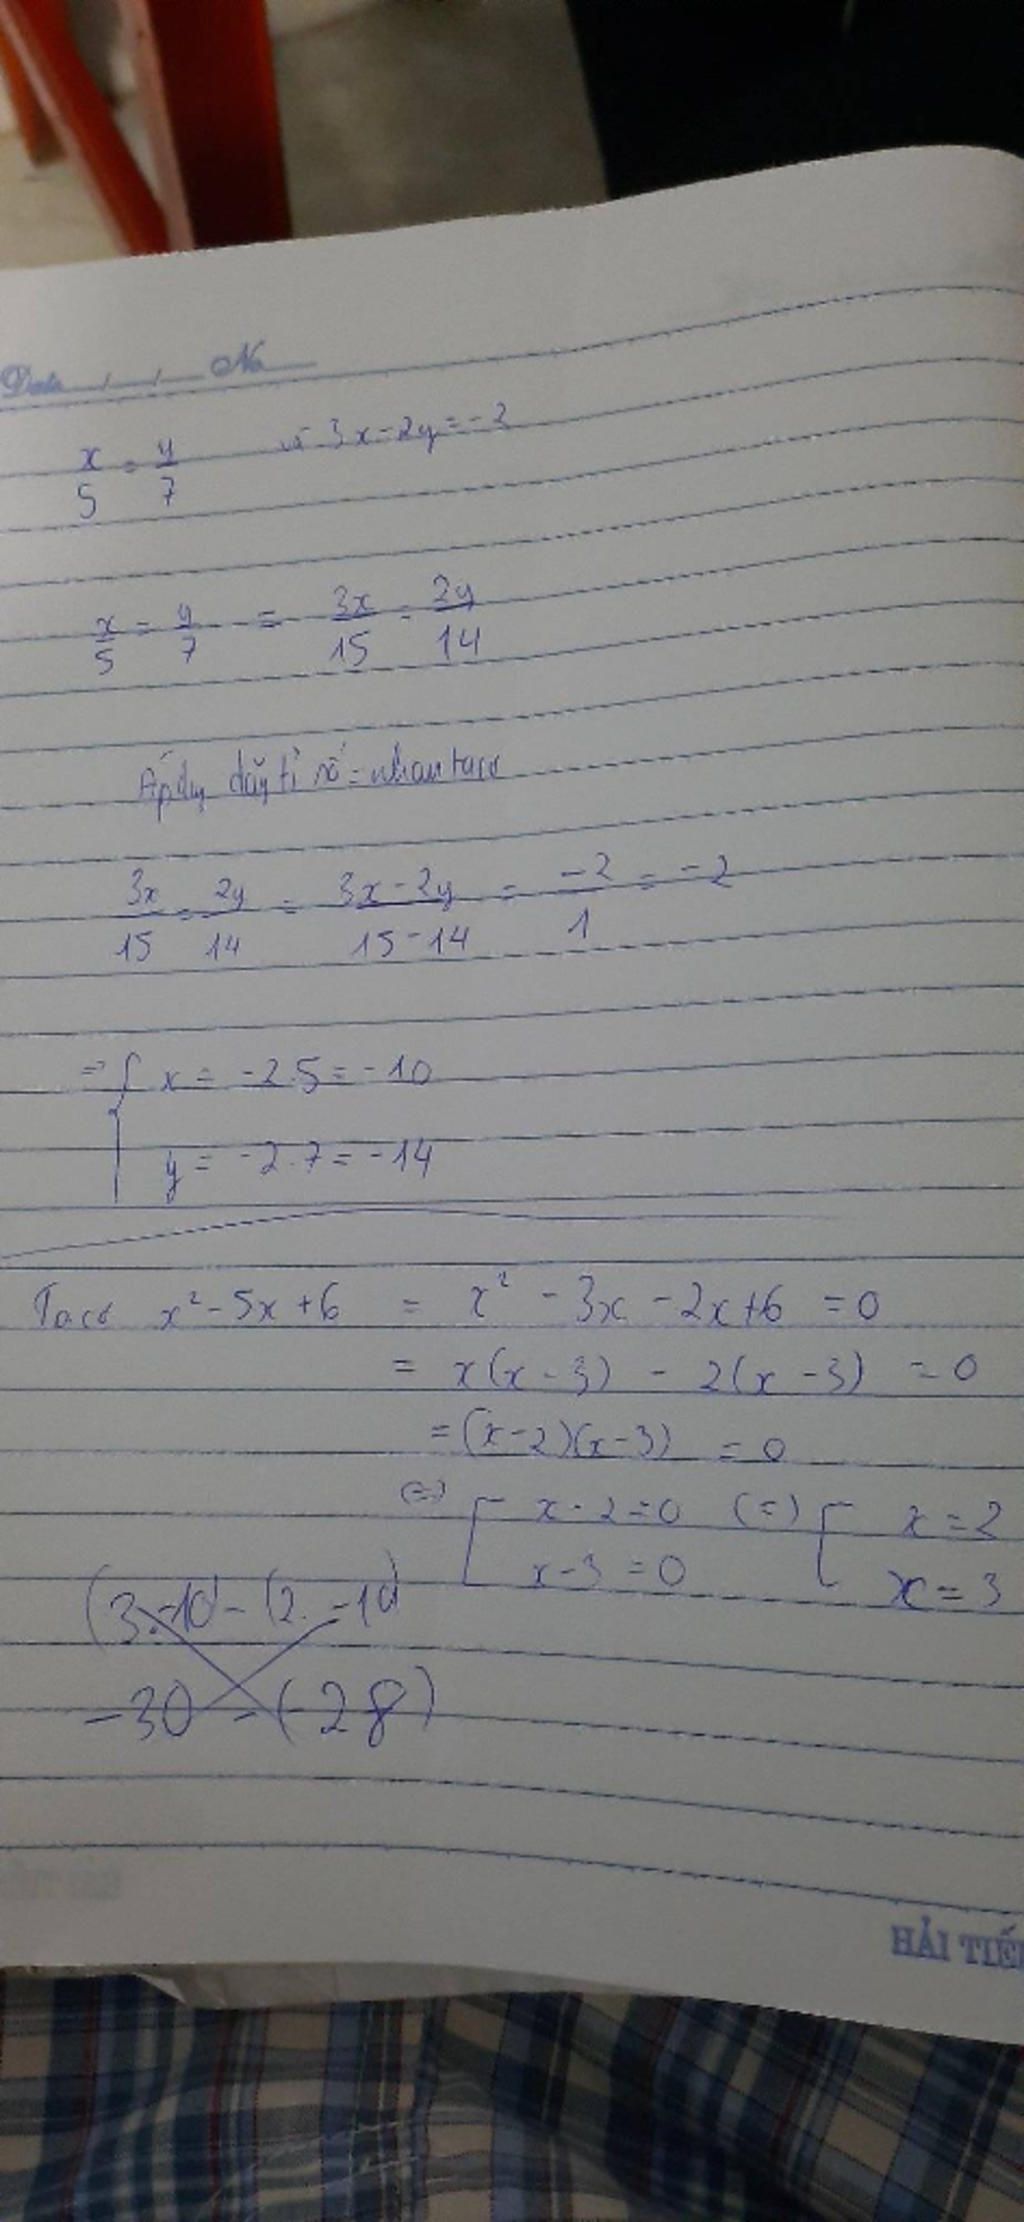 Date / / No
x/5 = y/7 và 3x-2y=-2
x/5 = y/7 = 3x/15 = 2y/14
Áp dụng dãy tỉ số = nhau ta có
3x/15 = 2y/14 = 3x-2y/15-14 = -2/1 = -2
=> { x = -2.5 = -10
y = -2.7 = -14
Ta có x² - 5x + 6 = x² - 3x - 2x + 6 = 0
= x(x - 3) - 2(x - 3) = 0
= (x-2)(x-3) = 0
(=) [ x - 2 = 0 (=) [ x = 2
x - 3 = 0 x = 3
-30 - (-28)
HẢI TIẾ